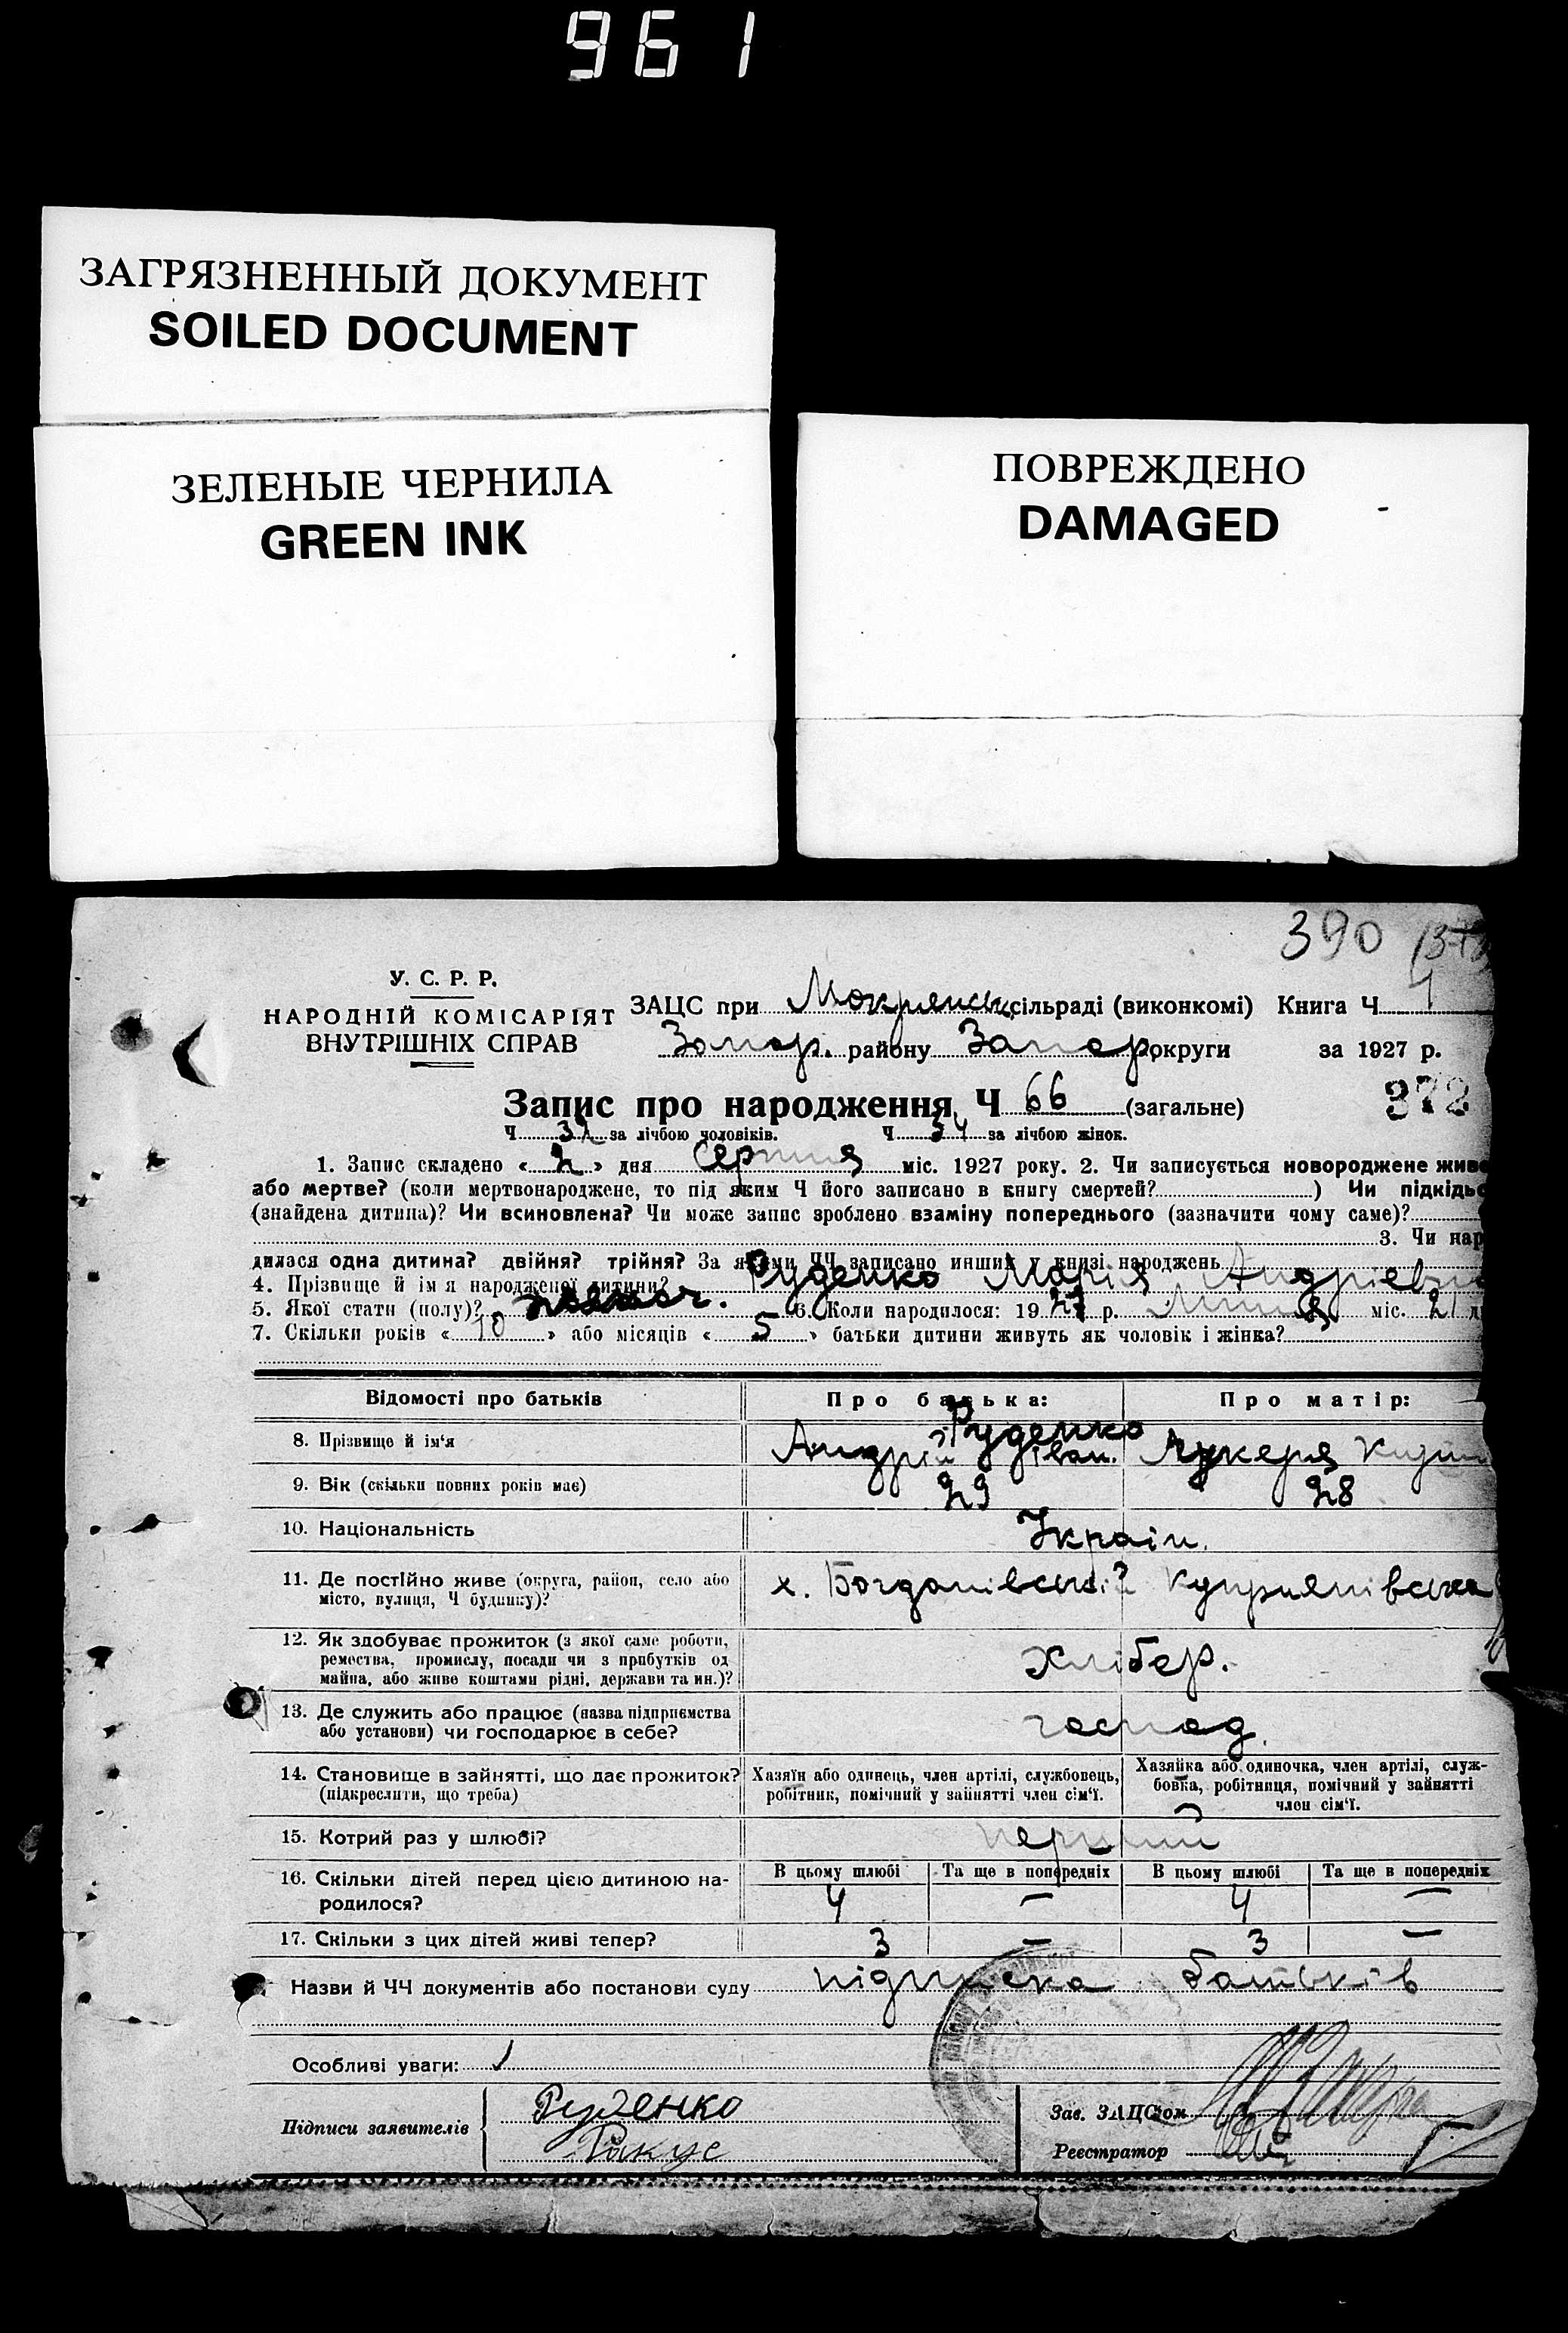 961
ЗАГРЯЗНЕННЫЙ ДОКУМЕНТ
SOILED DOCUMENT
ЗЕЛЕНЫЕ ЧЕРНИЛА
GREEN INK
ПОВРЕЖДЕНО
DAMAGED
390
У. С. Р. Р.
НАРОДНІЙ КОМІСАРІЯТ
ВНУТРІШНІХ СПРАВ
ЗАЦС при Мокрянськ сільраді (виконкомі) Книга Ч 1
Запор. району Запор. округи за 1927 р.
372
Запис про народження Ч 66 (загальне)
Ч 32 за лічбою чоловіків. Ч 34 за лічбою жінок.
1. Запис складено « 2 » дня Серпня міс. 1927 року. 2. Чи записується новороджене живе
або мертве? (коли мертвонароджене, то під яким Ч його записано в книгу смертей? ) Чи підкідьо
(знайдена дитина)? Чи всиновлена? Чи може запис зроблено взаміну попереднього (зазначити чому саме)?
3. Чи нар
дилася одна дитина? двійня? трійня? За якими ЧЧ записано инших у книзі народжень
4. Прізвище й ім я народженої дитини? Руденко Марія Андріевна
5. Якої стати (полу)? 6. Коли народилося: 19 27 р. Липня міс. 21 д
7. Скільки років « 10 » або місяців « 5 » батьки дитини живуть як чоловік і жінка?
Відомості про батьків Про батька: Про матір:
8. Прізвище й ім‘я Руденко Андрій Іван. Лукеря
9. Вік (скільки повних років має) 29 28
10. Національність Україн.
11. Де постійно живе (округа, район, село або місто, вулиця, Ч будинку)? х. Богданівський Купріянівська
12. Як здобуває прожиток (з якої саме роботи, ремества, промислу, посади чи з прибутків од майна, або живе коштами рідні, держави та ин.)? Хлібер.
13. Де служить або працює (назва підприємства або установи) чи господарює в себе? господ.
14. Становище в зайнятті, що дає прожиток? (підкреслити, що треба) Хазяїн або одинець, член артілі, службовець, робітник, помічний у зайнятті член сім‘ї. Хазяйка або одиночка, член артілі, служ-
бовка, робітниця, помічний у зайнятті член сім‘ї.
15. Котрий раз у шлюбі? перший
16. Скільки дітей перед цією дитиною на-
родилося? В цьому шлюбі Та ще в попередніх В цьому шлюбі Та ще в попередніх
4 — 4 —
17. Скільки з цих дітей живі тепер? 3 — 3 —
Назви й ЧЧ документів або постанови суду підписка батьків
Особливі уваги:
Підписи заявителів Руденко
Ракус
Зав. ЗАЦС‘ом
Реєстратор